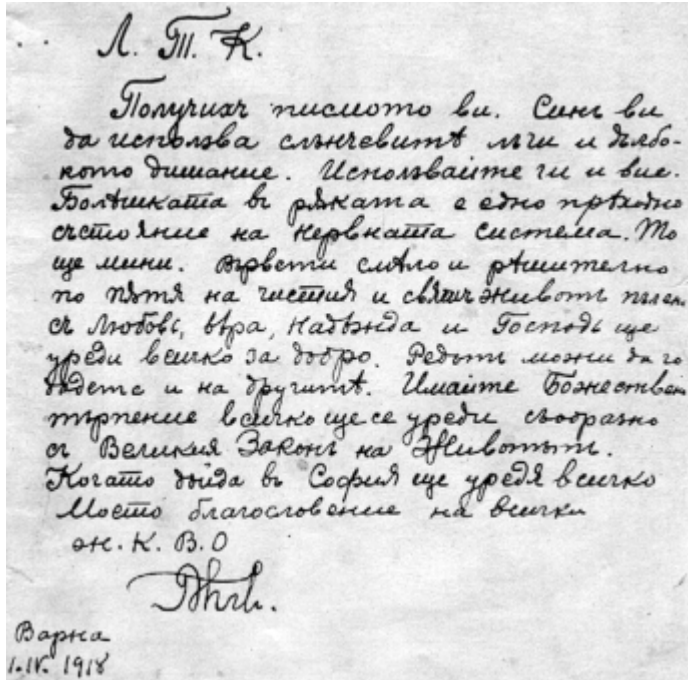 Л. Т. К.
Получихъ писмото ви. Синъ ви
да исползва слънчевитѣ лѫчи и дълбо-
кото дишание. Исползвайте ги и вие.
Болѣшката въ рѫката е едно прѣходно
състояние на нервната система. То
ще мини. Вървети смѣло и рѣшително
по пѫтя на чистия и святъ животъ пълен
съ Любовь, вѣра, надѣжда и Господь ще
уреди всичко за добро. Редътъ можи да го
дадете и на другитѣ. Имайте Божествен
търпение всичко ще се уреди съобразно
съ Великия Законъ на Животътъ.
Когато дойда въ София ще уредя всичко
Моето благословение на всички
К. В. О
Варна
1. IV. 1918